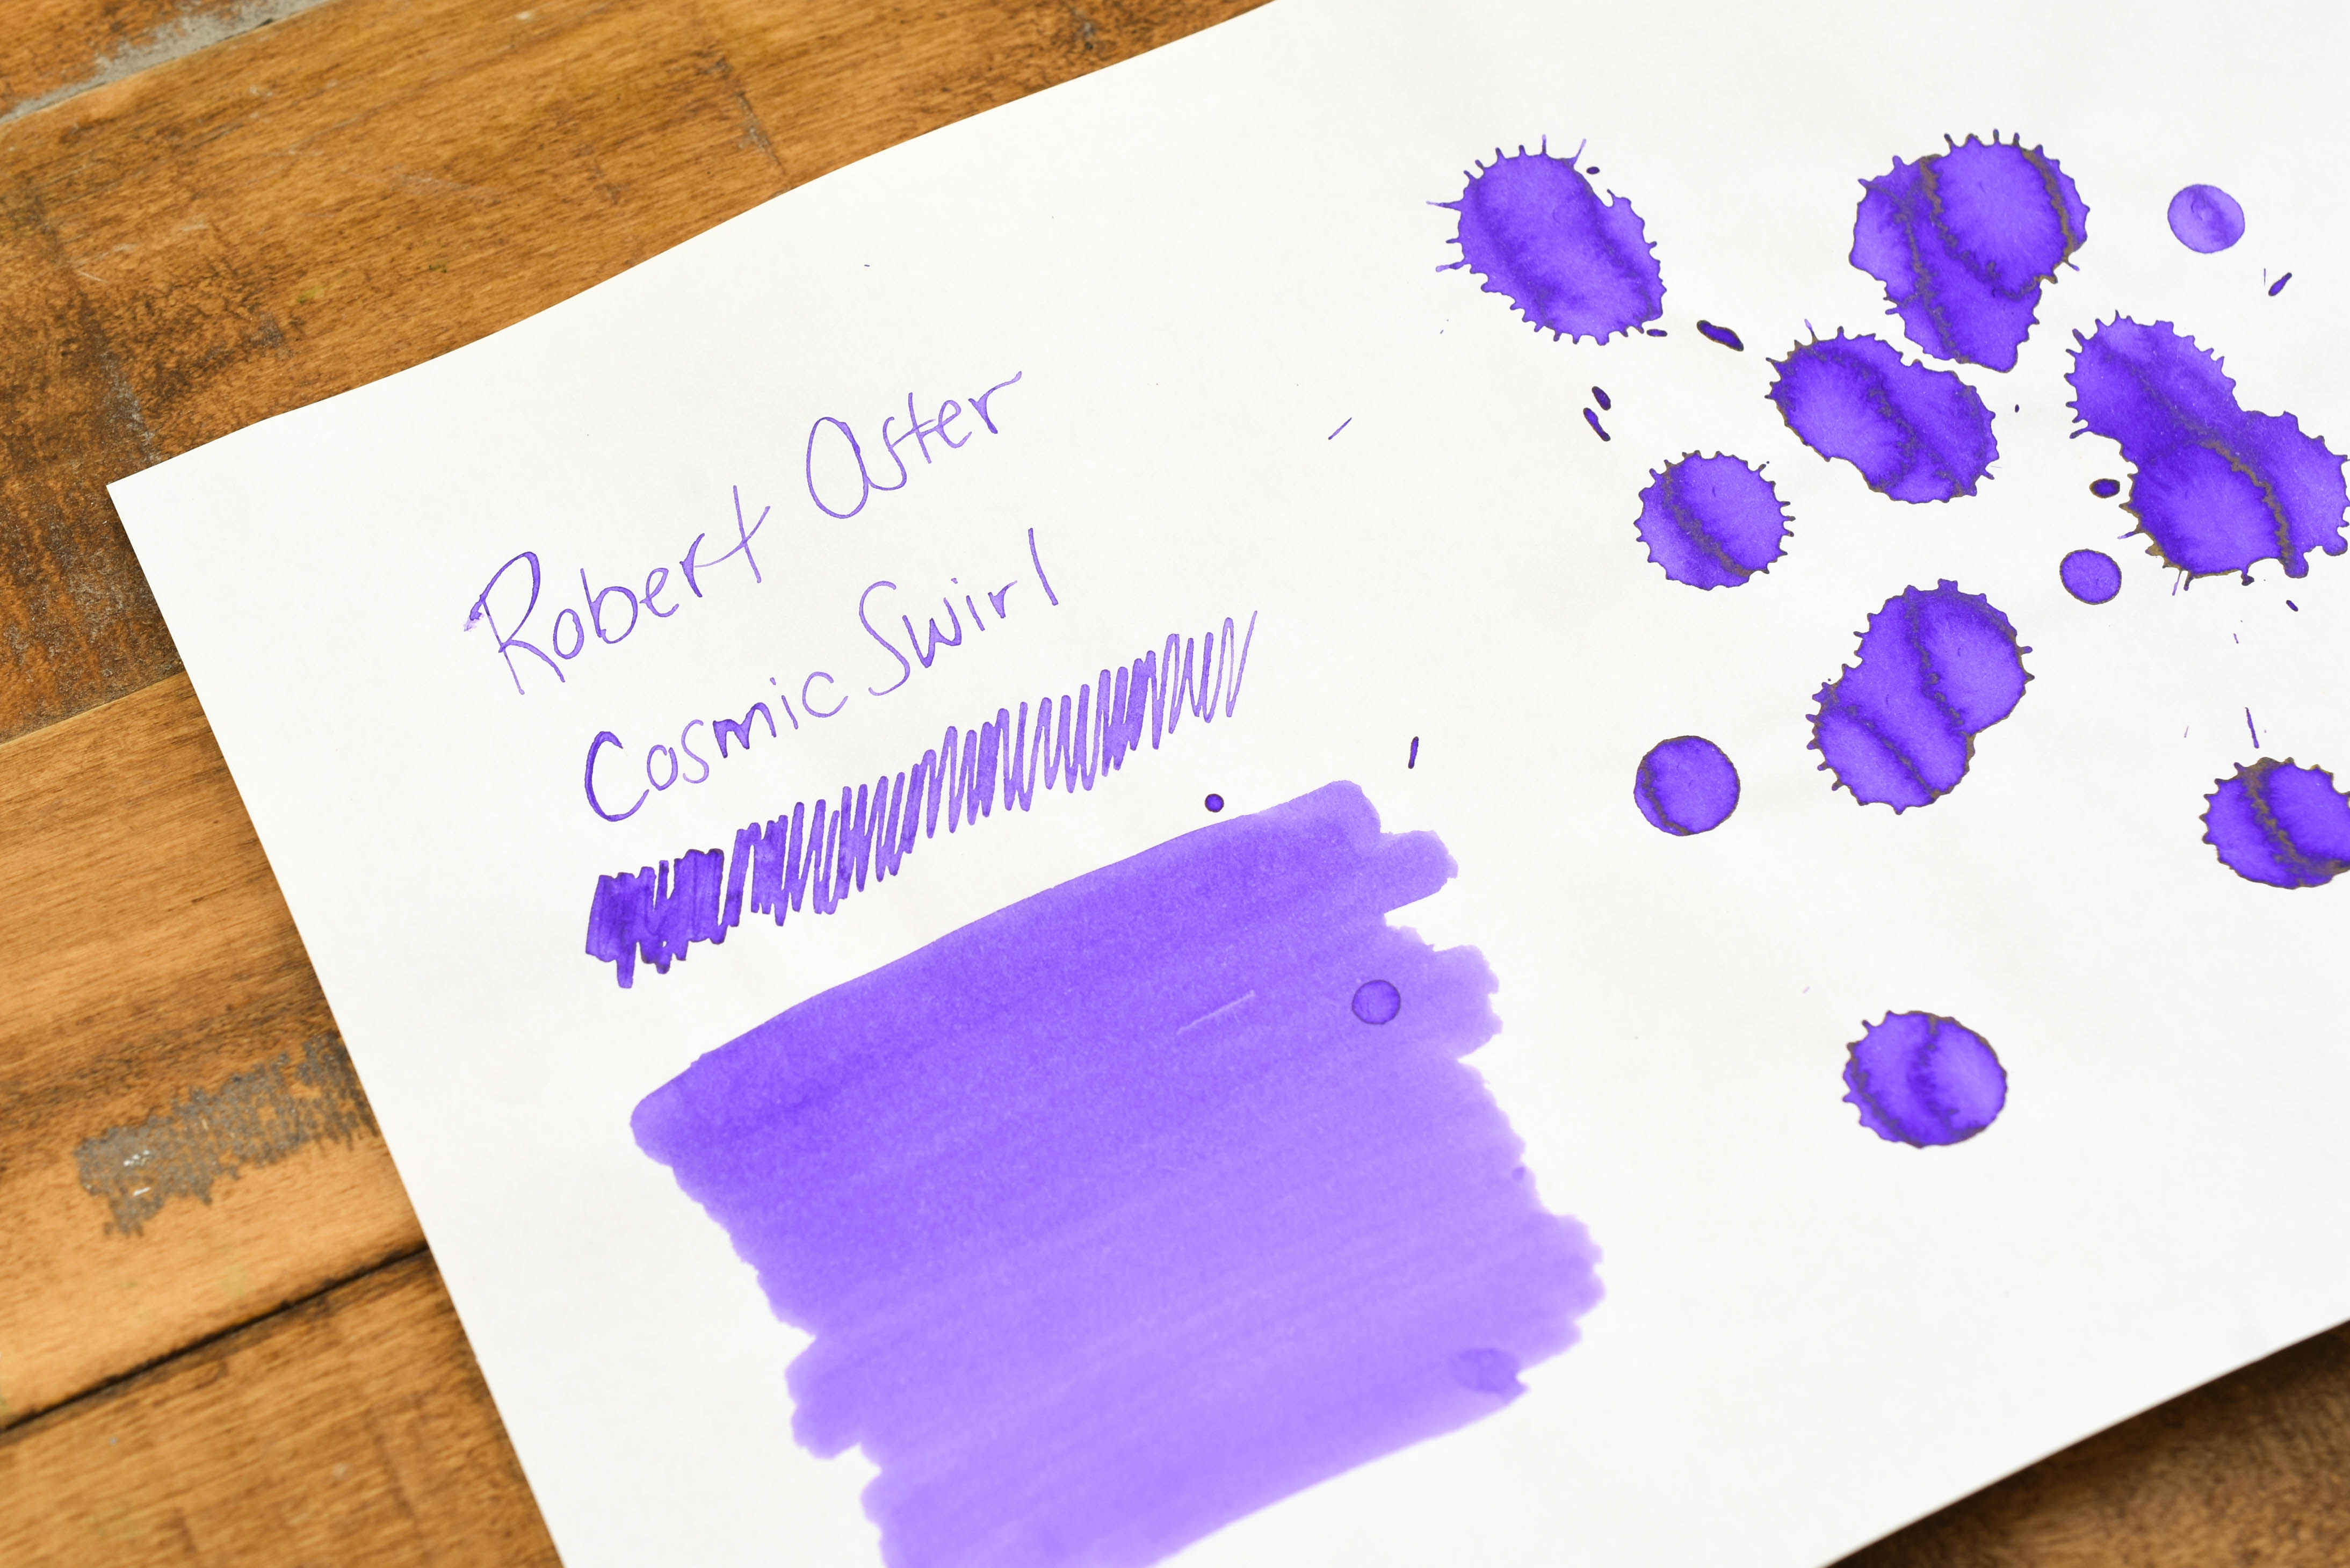 Robert Oster
Cosmic Swirl